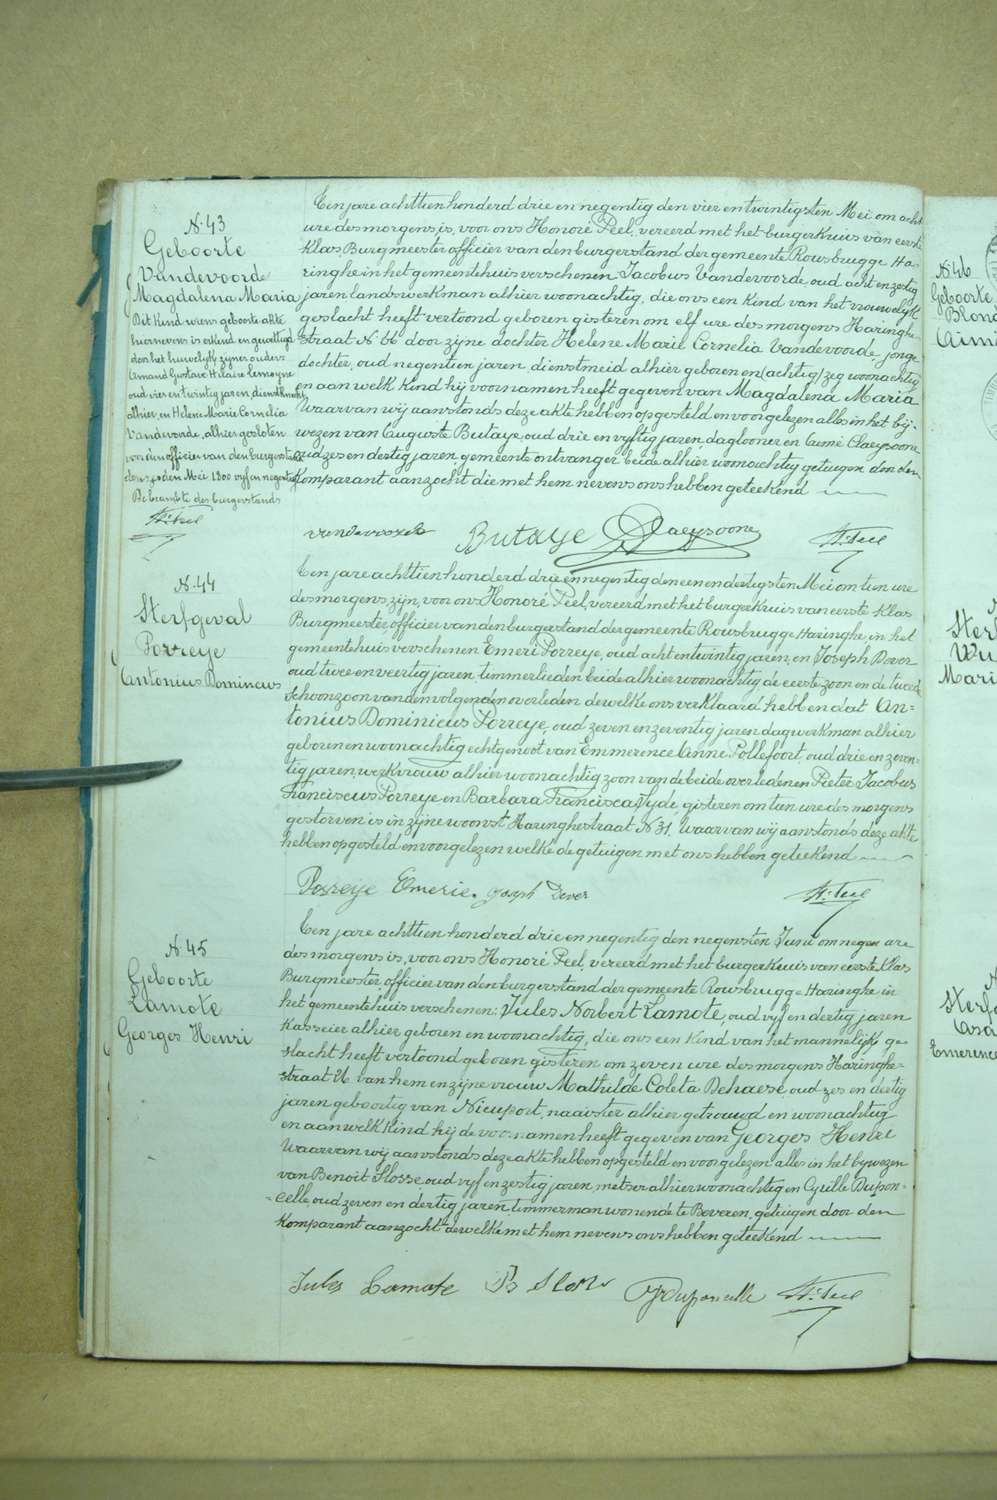 N. 43
Geboorte
Vandevoorde
Magdalena Maria
Dit kind wiens geboorte akte
hiernevens is erkend en gewettigd
door het huwelijk zijner ouders
Amand Gustave Hilaire Lemoyne
oud vier en twintig jaren dienstknecht
alhier, en Helene Marie Cornelia
Vandevoorde, alhier gesloten
voor den officier van den burgerstand
den Mei 1800 vyf en negentig
De beambte des burgerstands
H. Peel
Een jare achttien honderd drie en negentig den vier en twintigsten Mei om acht
ure des morgens, is, voor ons Honoré Peel, vereerd met het burgerkruis van eerste
Klas, Burgmeester officier van den burgerstand der gemeente Rousbrugge Ha-
ringhe in het gemeentehuis verschenen Jacobus Vandevoorde, oud acht en zestig
jaren landswerkman alhier woonachtig, die ons een kind van het vrouwelijk
geslacht heeft vertoond geboren gisteren om elf ure des morgens Haringhe-
straat N. 66 door zyne dochter Helene Marie Cornelia Vandevoorde, jonge
dochter, oud negentien jaren, dienstmeid alhier geboren en (achtig) zeg woonachtig
en aan welk kind hy voornamen heeft gegeven van Magdalena Maria
Waarvan wij aanstonds deze akte hebben opgesteld en voorgelezen alles in het bij-
wezen van Auguste Butaye, oud drie en vyftig jaren daglooner en Aimé Claeysoone
oud zes en dertig jaren, gemeente ontvanger beide alhier woonachtig getuigen den den
Komparant aanzocht die met hem nevens ons hebben geteekend
vandevoorde Butaye Claeysoone H. Peel
N. 44
Sterfgeval
Porreye
Antonius Dominicus
Een jare achttien honderd drie en negentig den een en dertigsten Mei om tien ure
des morgens, zijn, voor ons Honoré Peel, vereerd met het burgerkruis van eerste Klas
Burgmeester, officier van den burgerstand der gemeente Rousbrugge Haringhe, in het
gemeentehuis verschenen Emeri Porreye, oud acht en twintig jaren, en Joseph Dever
oud twee en veertig jaren timmerlieden beide alhier woonachtig de eerste zoon en de tweede
schoonzoon van den volgenden overleden dewelke ons verklaard hebben dat An-
tonius Dominicus Porreye, oud zeven en zeventig jaren dagwerkman alhier
geboren en woonachtig echtgenoot van Emmerence Anne Pollefoort, oud drie en zeven-
tig jaren, werkvrouw alhier woonachtig zoon van de beide overledenen Pieter Jacobus
Franciscus Porreye en Barbara Francisca Syde gisteren om tien ure des morgens
gestorven is in zijne woonst Haringhestraat N. 31. Waarvan wij aanstonds deze akte
hebben opgesteld en voorgelezen welke de getuigen met ons hebben geteekend
Porreije Emerie. Joseph Dever H. Peel
N. 45
Geboorte
Lamote
Georges Henri
Een jare achttien honderd drie en negentig den negensten Juni om negen ure
des morgens is, voor ons Honoré Peel, vereerd met het burgerkruis van eerste Klas
Burgmeester, officier van den burgerstand der gemeente Rousbrugge Haringhe in
het gemeentehuis verschenen: Jules Norbert Lamote, oud vyf en dertig jaren
Kasseier alhier geboren en woonachtig, die ons een kind van het mannelijk ge-
slacht heeft vertoond geboren gisteren om zeven ure des morgens Haringhe-
straat 26 van hem en zijne vrouw Mathilde Coleta Dehaese oud zes en dertig
jaren geboortig van Nieuport, naaister alhier getrouwd en woonachtig
en aan welk kind hij de voornamen heeft gegeven van Georges Henri
Waarvan wij aanstonds deze akte hebben opgesteld en voorgelezen alles in het bywezen
van Benoit Slosse, oud vyf en zestig jaren, metser alhier woonachtig en Cyrille Dupon-
celle, oud zeven en dertig jaren timmerman wonende te Beveren getuigen door den
Komparant aanzocht dewelke met hem nevens ons hebben geteekend
Jules Lamote B Slosse Duponcelle H. Peel
N. 46
Geboorte